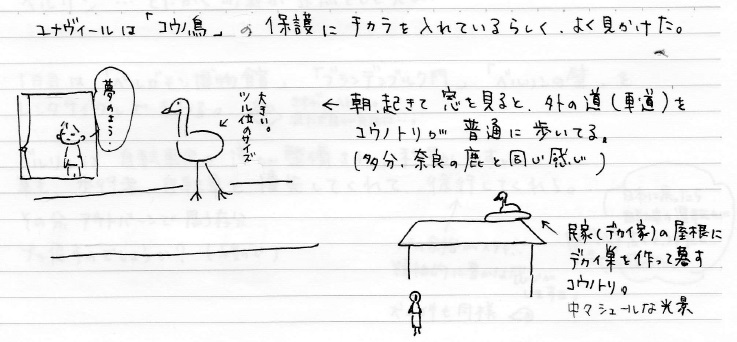 ユナヴィールは「コウノ鳥」の保護にチカラを入れているらしく、よく見かけた。
夢のよう…
大きい。
ツル位のサイズ
← 朝、起きて窓を見ると、外の道(車道)を
コウノトリが普通に歩いてる。
(多分、奈良の鹿と同じ感じ)
民家(デカイ家)の屋根に
デカイ巣を作って暮す
コウノトリ。
中々シュールな光景